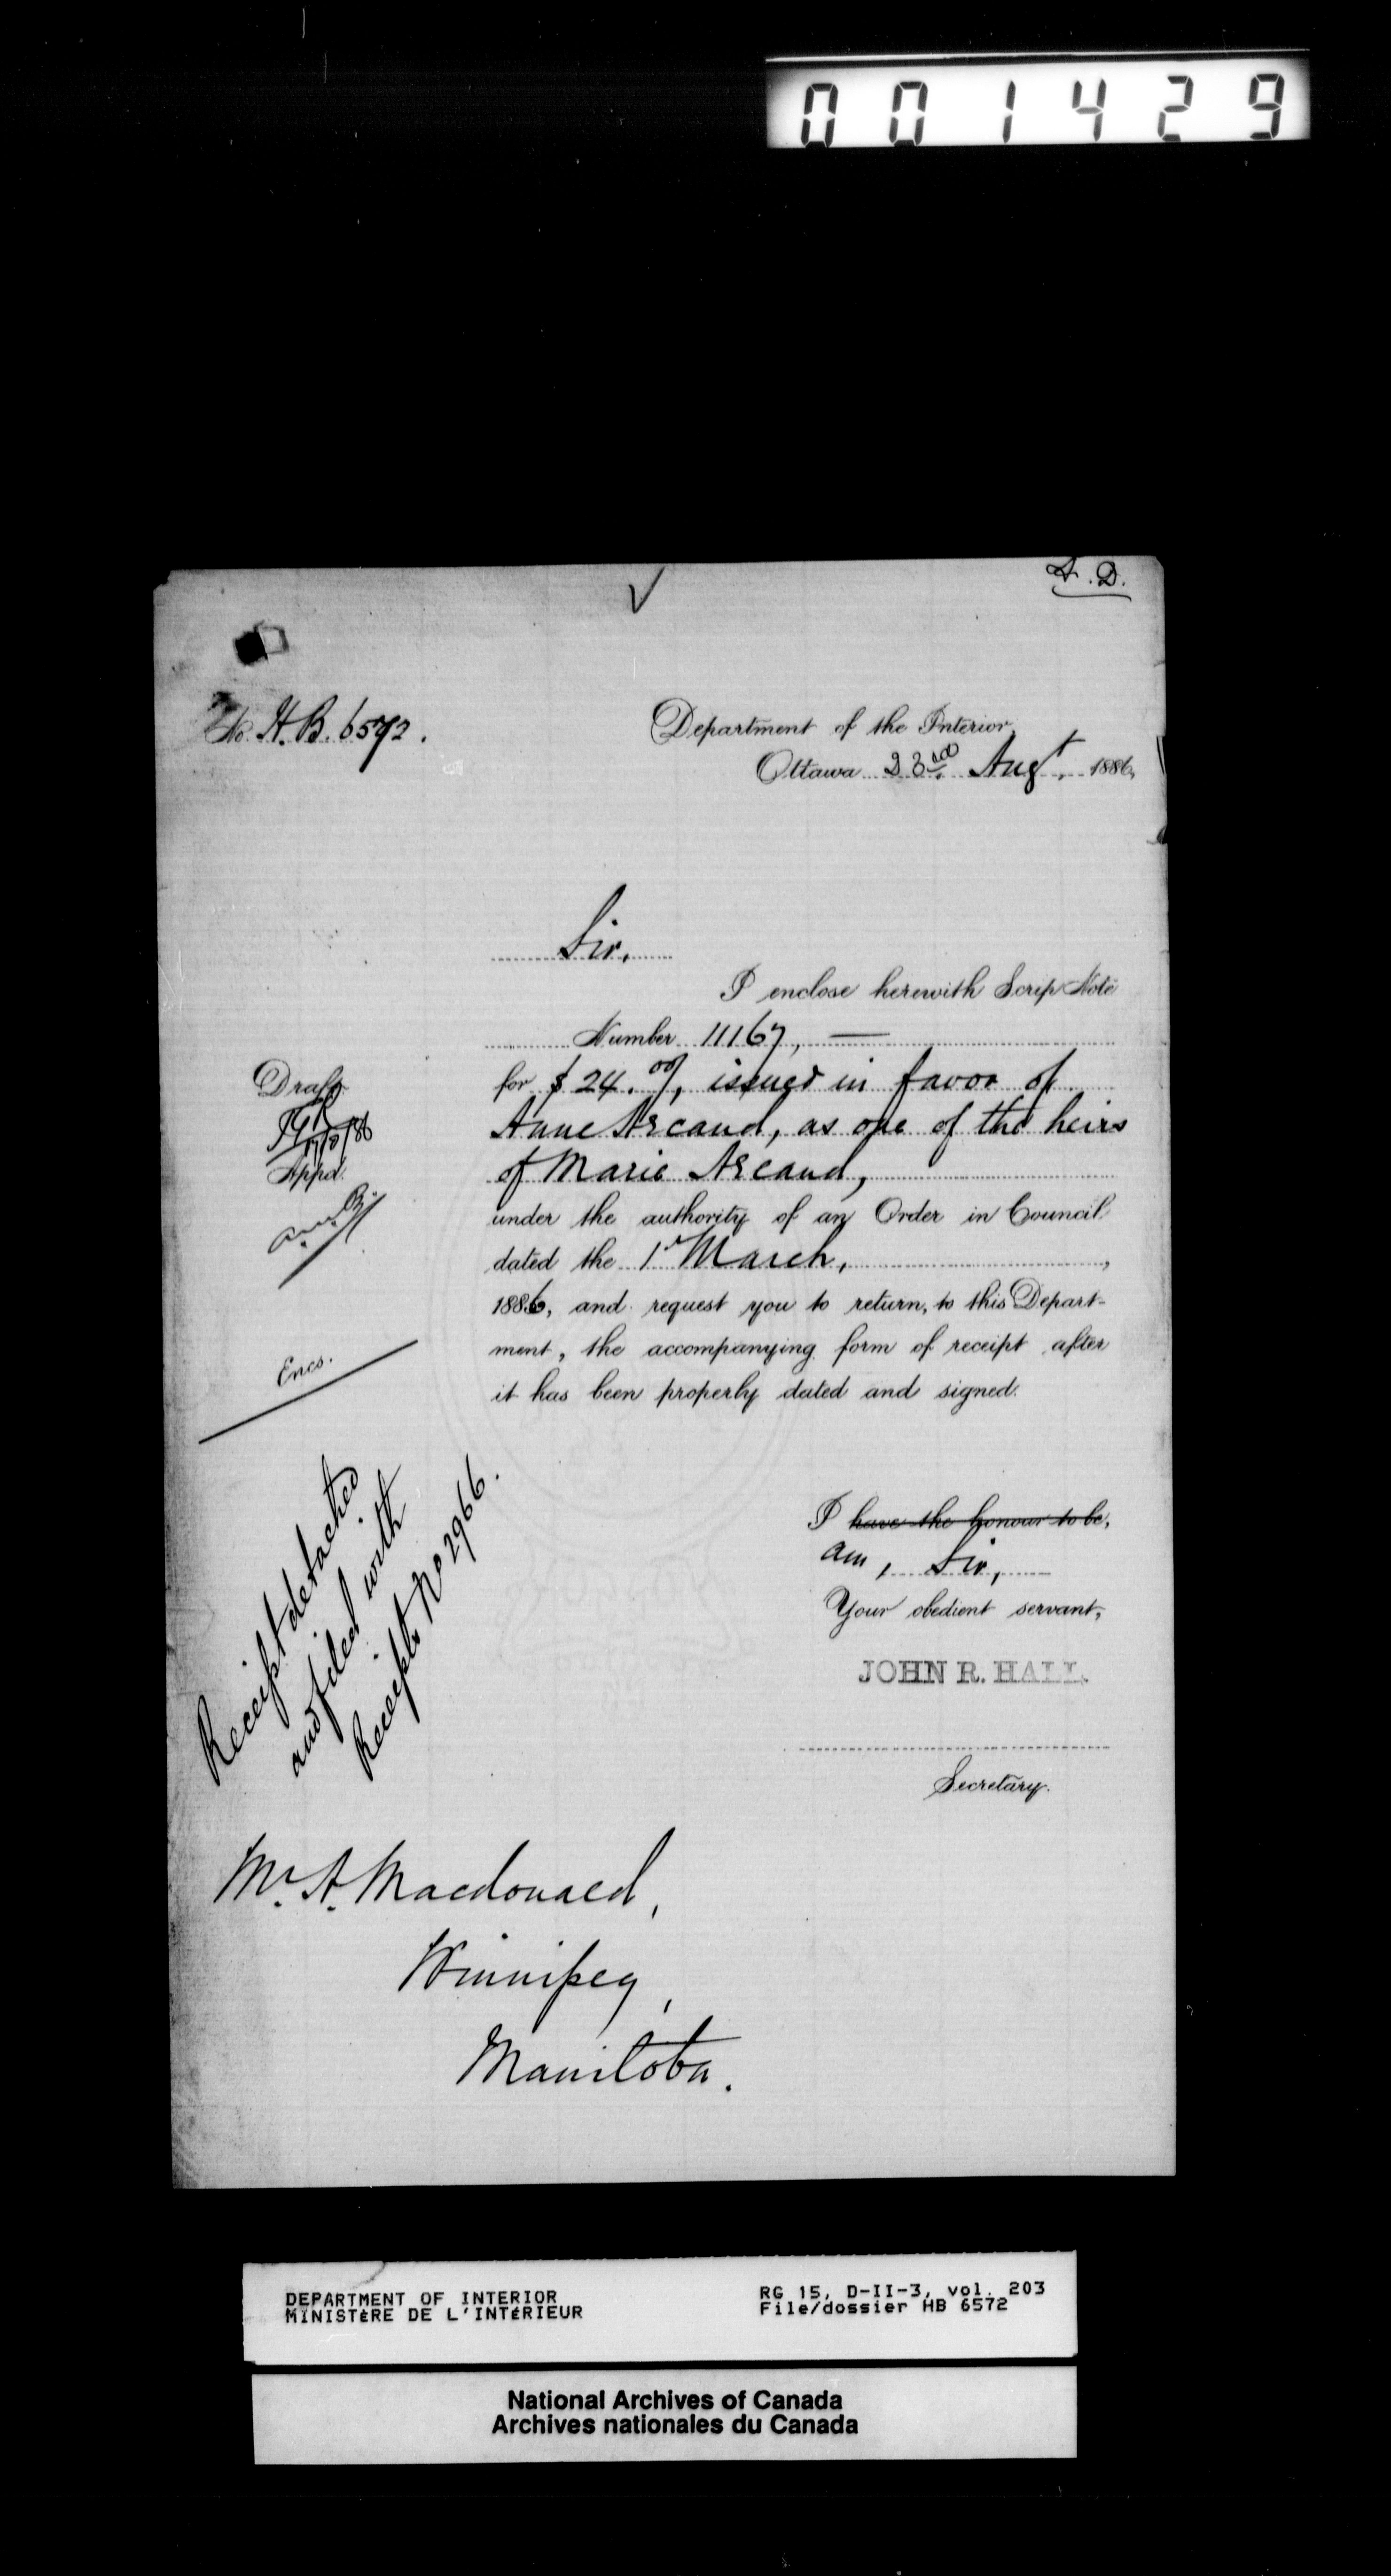 001429
A. D.
No. H. B. 6572.
Department of the Interior,
Ottawa 23rd Augt. 1886,
Sir,
I enclose herewith Scrip Note
Number 11167, —
for $ 24.00/, issued in favor of
Anne Arcand, as one of the heirs
of Marie Arcand,
under the authority of an Order in Council
dated the 1st March, ,
1886, and request you to return, to this Depart-
ment, the accompanying form of receipt after
it has been properly dated and signed.
Draft
Appd.
Encs.
Receipt detached
and filed with
Receipt No 2966.
I have the honour to be,
am, Sir,
Your obedient servant,
JOHN R. HALL
Secretary.
Mr. A. Macdonald,
Winnipeg,
Manitoba.
DEPARTMENT OF INTERIOR
MINISTÈRE DE L'INTÉRIEUR
RG 15, D-II-3, vol. 203
File/dossier HB 6572
National Archives of Canada
Archives nationales du Canada